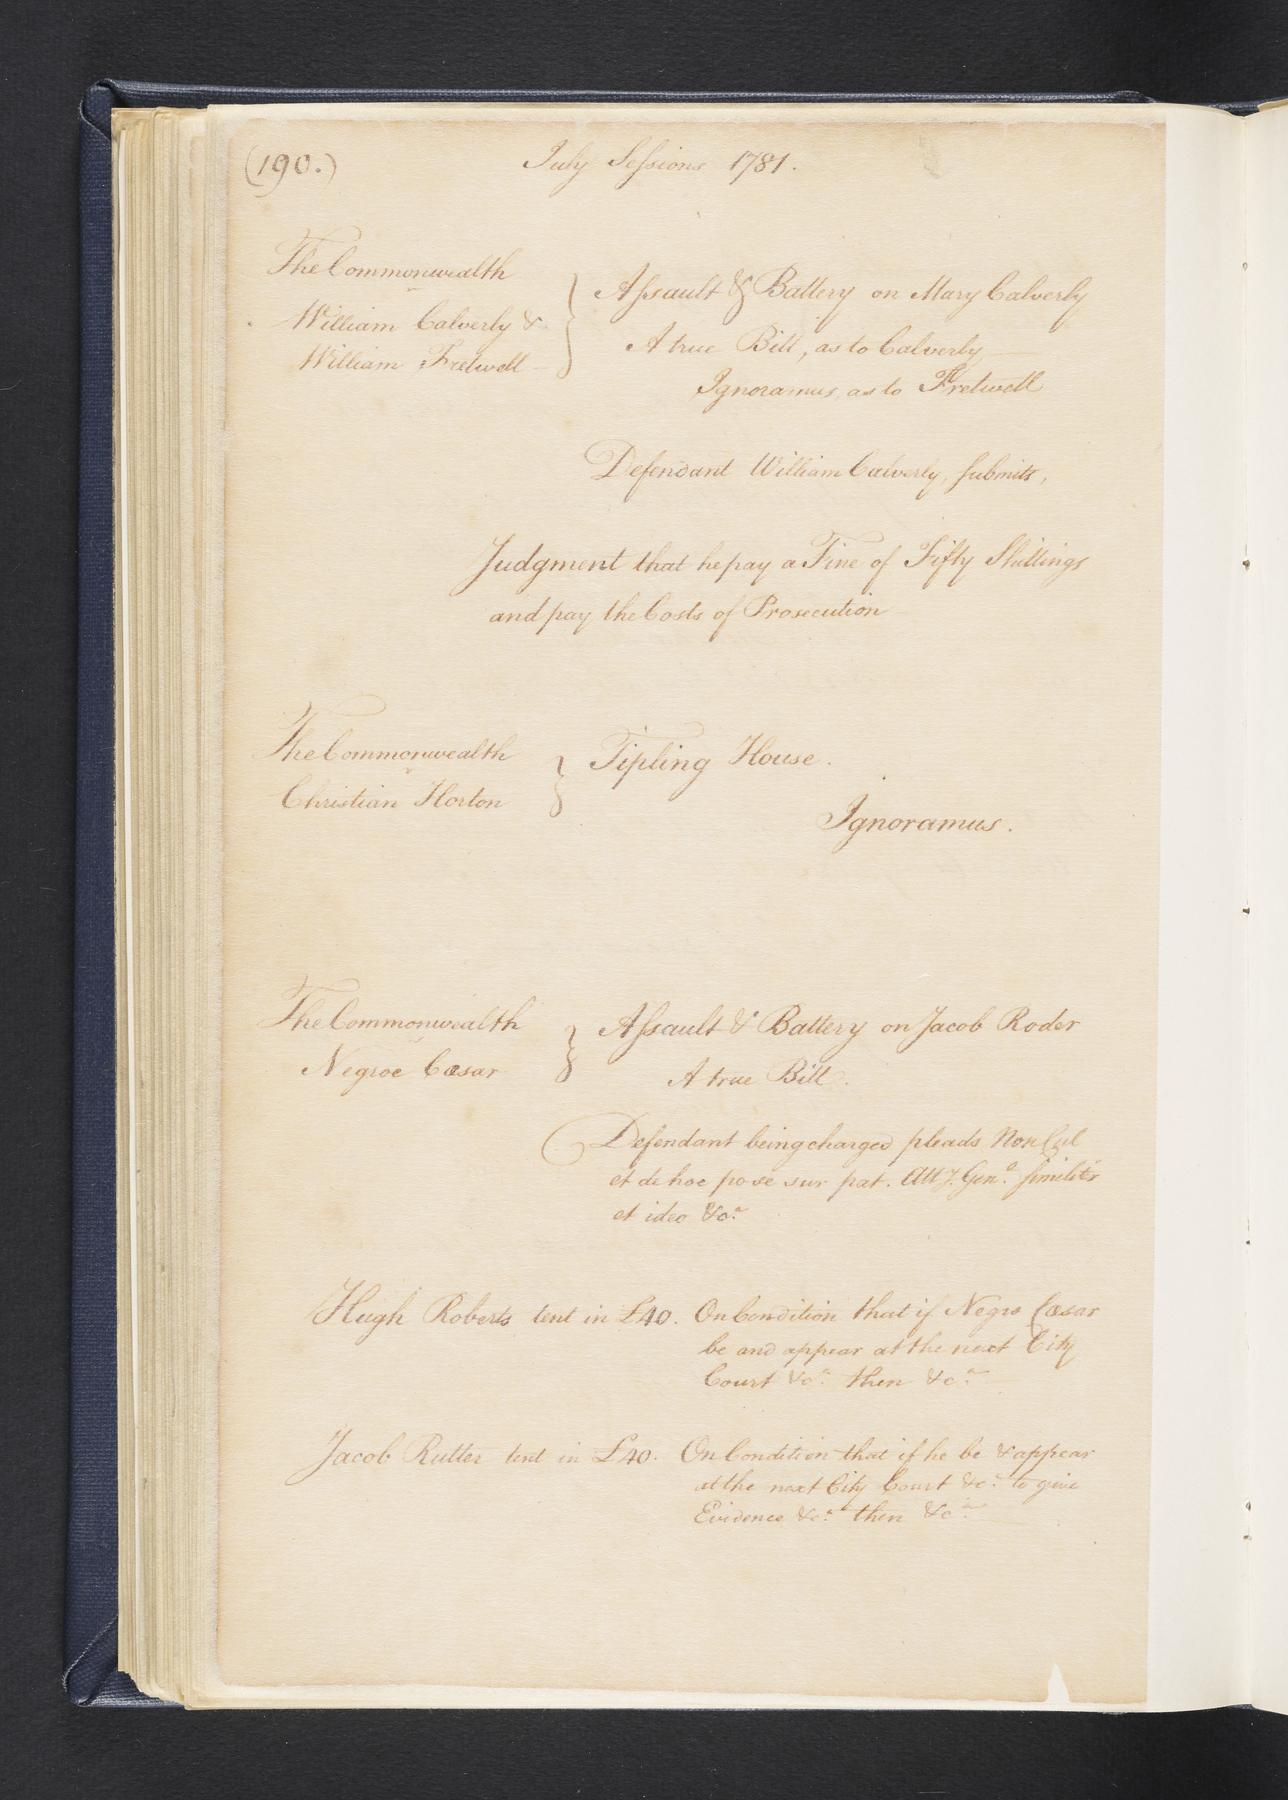 (190.)
July Sessions 1781.
The Commonwealth
v
William Calverly &
William Fretwell
Assault & Battery on Mary Calverly
A true Bill, as to Calverly
Ignoramus, as to Fretwell
Defendant William Calverly, submits,
Judgment that he pay a Fine of Fifty Shillings
and pay the Costs of Prosecution
The Commonwealth
v
Christian Horton
Tipling House.
Ignoramus.
The Commonwealth
v
Negroe Cæsar
Assault & Battery on Jacob Roder
A true Bill.
Defendant being charged pleads Non Cul
et de hoc po se sur pat. Atty. Genl. similiter
et ideo &ca.
Hugh Roberts tent in £40. On Condition that if Negro Cæsar
be and appear at the next City
Court &ca. then &ca.
Jacob Rutter tent in £40. On Condition that if he be & appear
at the next City Court &ca. to give
Evidence &ca. then &ca.